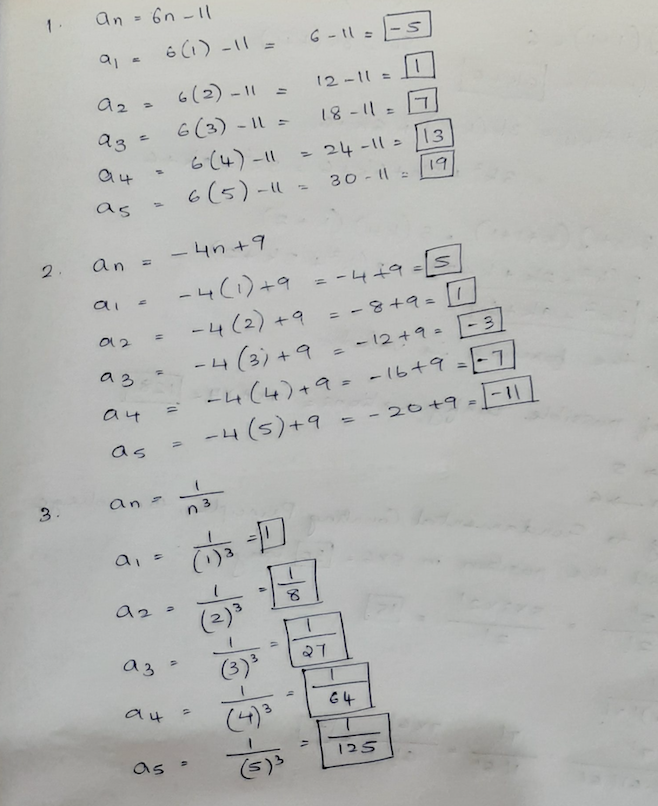 1. an = 6n - 11
a1 = 6(1) - 11 = 6 - 11 = -5
a2 = 6(2) - 11 = 12 - 11 = 1
a3 = 6(3) - 11 = 18 - 11 = 7
a4 = 6(4) - 11 = 24 - 11 = 13
a5 = 6(5) - 11 = 30 - 11 = 19
2. an = -4n + 9
a1 = -4(1) + 9 = -4 + 9 = 5
a2 = -4(2) + 9 = -8 + 9 = 1
a3 = -4(3) + 9 = -12 + 9 = -3
a4 = -4(4) + 9 = -16 + 9 = -7
a5 = -4(5) + 9 = -20 + 9 = -11
3. an = 1/n³
a1 = 1/(1)³ = 1
a2 = 1/(2)³ = 1/8
a3 = 1/(3)³ = 1/27
a4 = 1/(4)³ = 1/64
a5 = 1/(5)³ = 1/125